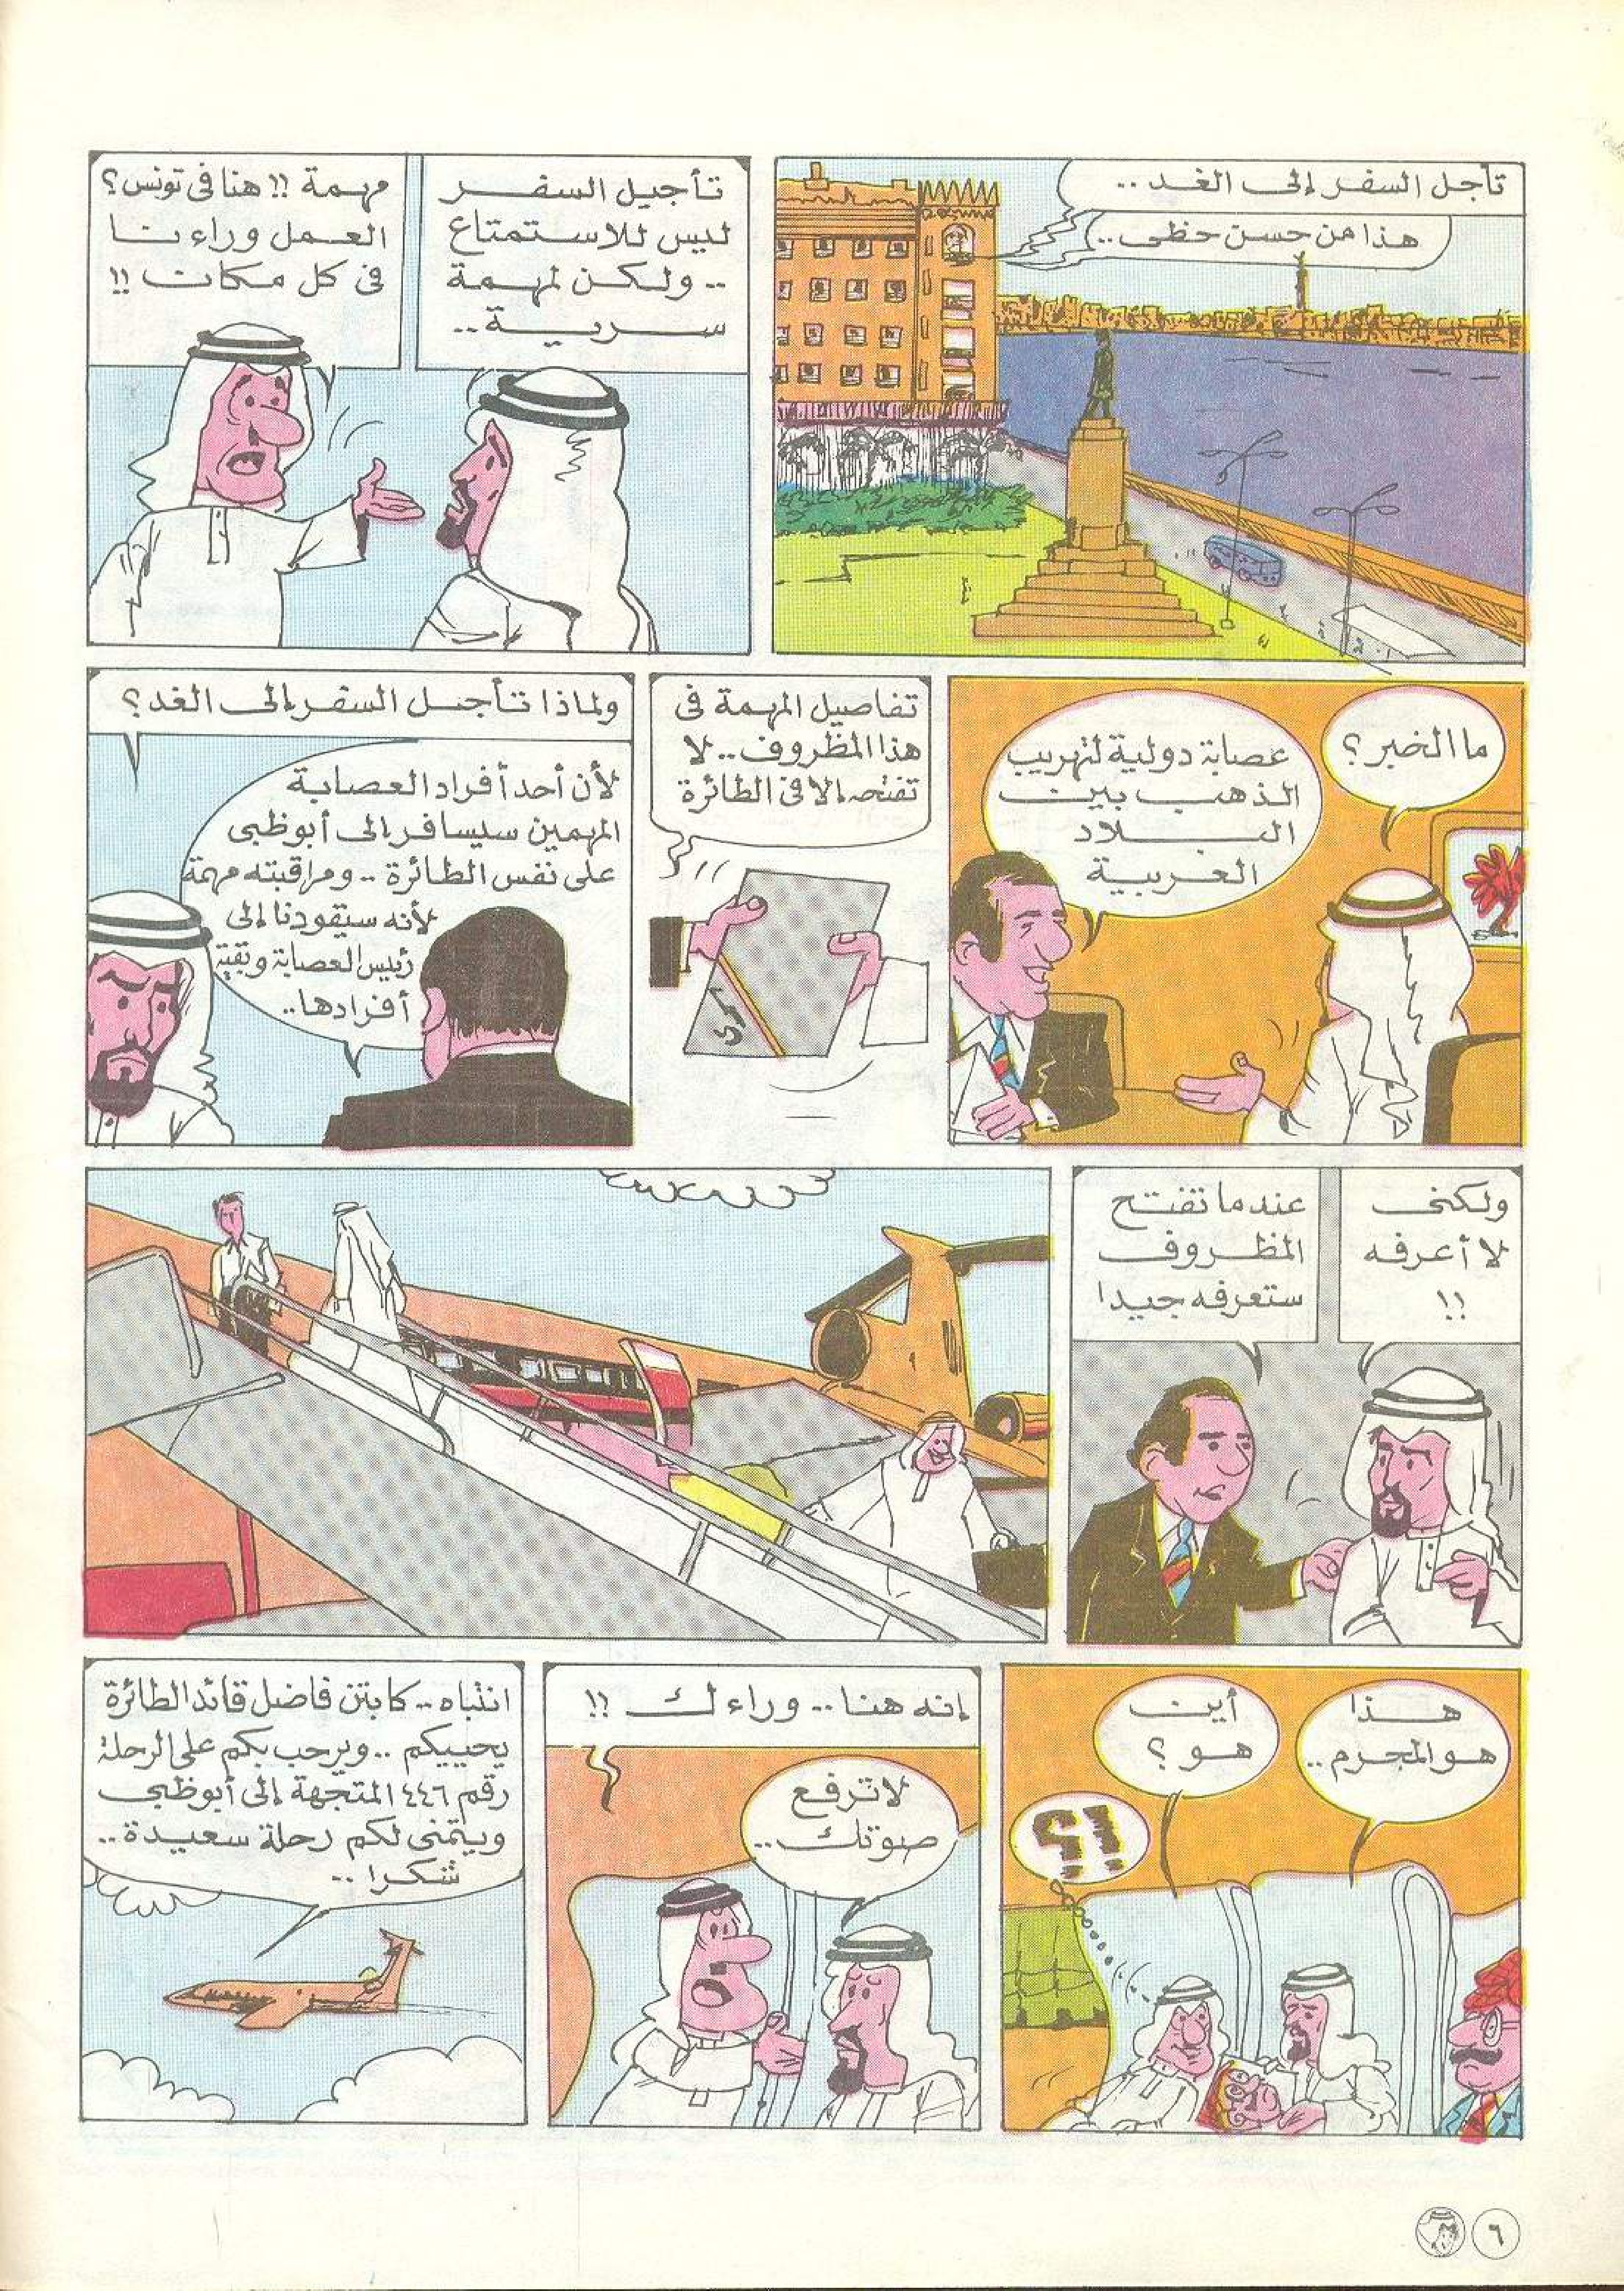 تأجل السفر إلى الغد ..
هذا من حسن حظى ..
تأجيل السفر
ليس للاستمتاع
.. ولكن لمهمة
سرية ..
مهمة !! هنا فى تونس؟
العمل وراءنا
فى كل مكان !!
ما الخبر ؟
عصابة دولية لتهريب
الذهب بين
البلاد
العربية
تفاصيل المهمة فى
هذا المظروف .. لا
تفتحه إلا فى الطائرة
سرى
ولماذا تأجل السفر إلى الغد ؟
لأن أحد أفراد العصابة
المهمين سيسافر إلى أبوظبى
على نفس الطائرة .. ومراقبته مهمة
لأنه سيقودنا إلى
رئيس العصابة وبقية
أفرادها ..
ولكنى
لا أعرفه
!!
عندما تفتح
المظروف
ستعرفه جيدا
هذا
هو المجرم ..
أين
هو ؟
!!؟؟
إنه هنا .. وراءك !!
لا ترفع
صوتك ..
انتباه .. كابتن فاضل قائد الطائرة
يحييكم .. ويرحب بكم على الرحلة
رقم ٤٤٦ المتجهة إلى أبوظبى
ويتمنى لكم رحلة سعيدة ..
شكرا ..
٦